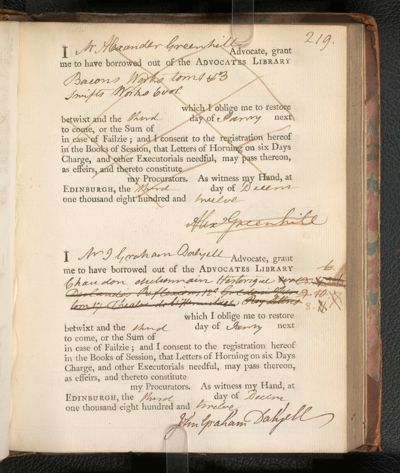 219.
I Mr Alexander Greenhill Advocate, grant
me to have borrowed out of the ADVOCATES LIBRARY
Bacons Works tom 1 & 3
Swifts Works 6 vol
which I oblige me to restore
betwixt and the third day of Janry next
to come, or the Sum of
in case of Failzie; and I consent to the registration hereof
in the Books of Session, that Letters of Horning on six Days
Charge, and other Executorials needful, may pass thereon,
as effeirs, and thereto constitute
my Procurators. As witness my Hand, at
EDINBURGH, the third day of Decem
one thousand eight hundred and twelve
Alexr Greenhill
I Mr J Graham Dalyell Advocate, grant
me to have borrowed out of the ADVOCATES LIBRARY
Chaudon dictionnaire Historique
which I oblige me to restore
betwixt and the third day of Janry next
to come, or the Sum of
in case of Failzie; and I consent to the registration hereof
in the Books of Session, that Letters of Horning on six Days
Charge, and other Executorials needful, may pass thereon,
as effeirs, and thereto constitute
my Procurators. As witness my Hand, at
EDINBURGH, the third day of Decem
one thousand eight hundred and twelve
John Graham Dalyell